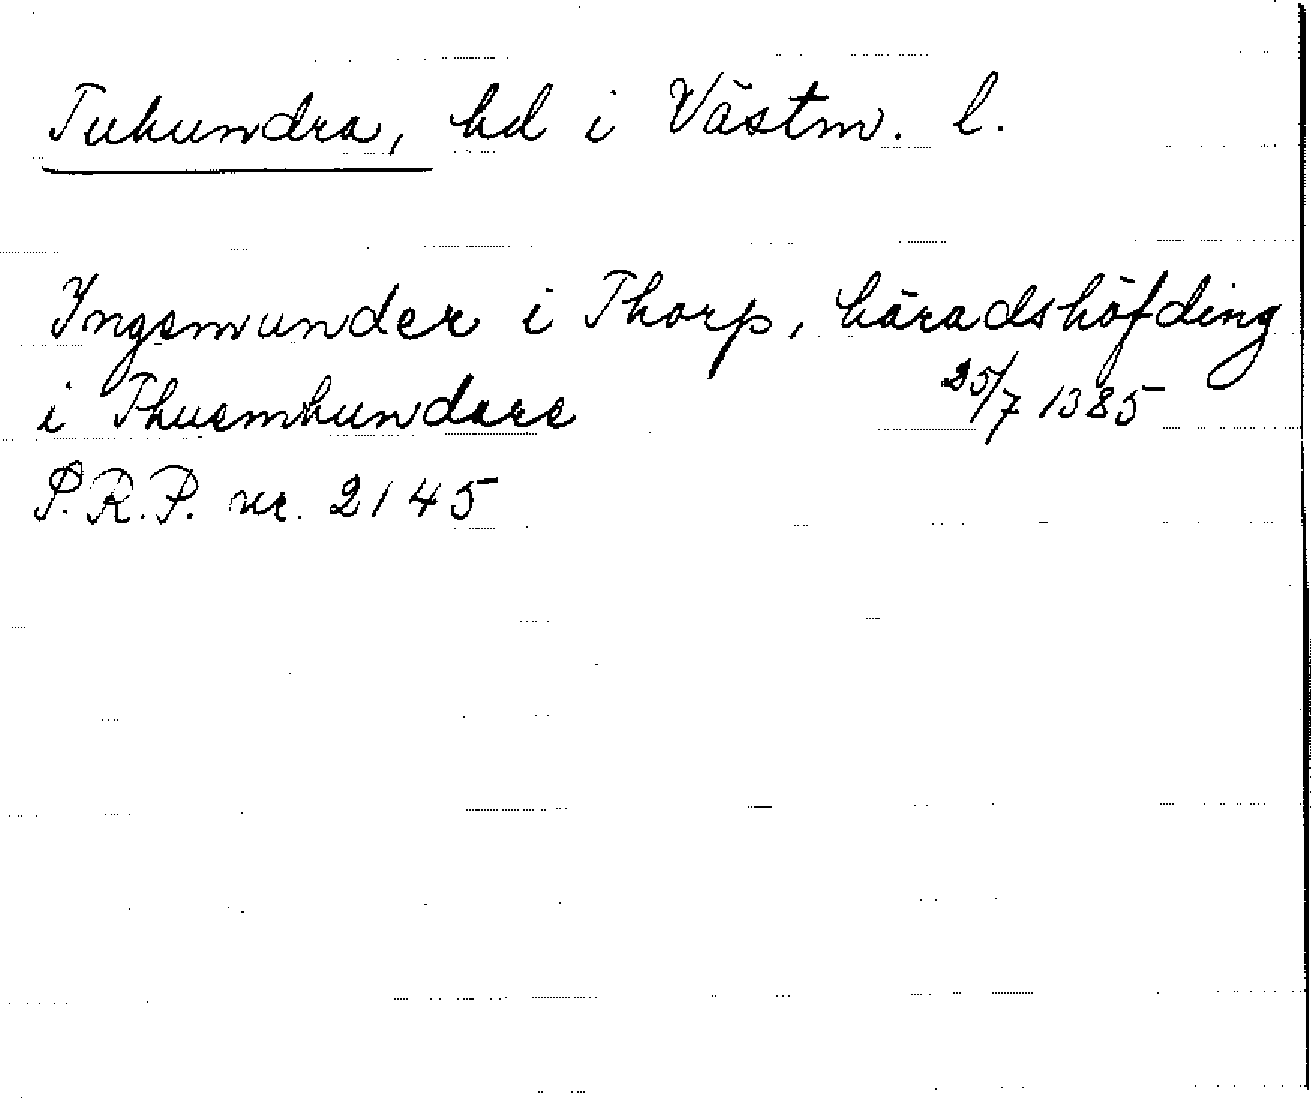 Tuhundra, hd i Västm. l.
Ingemunder i Thorp, häradshöfding
i Thuemhundare 25/7 1385
S.R.P. nr. 2145